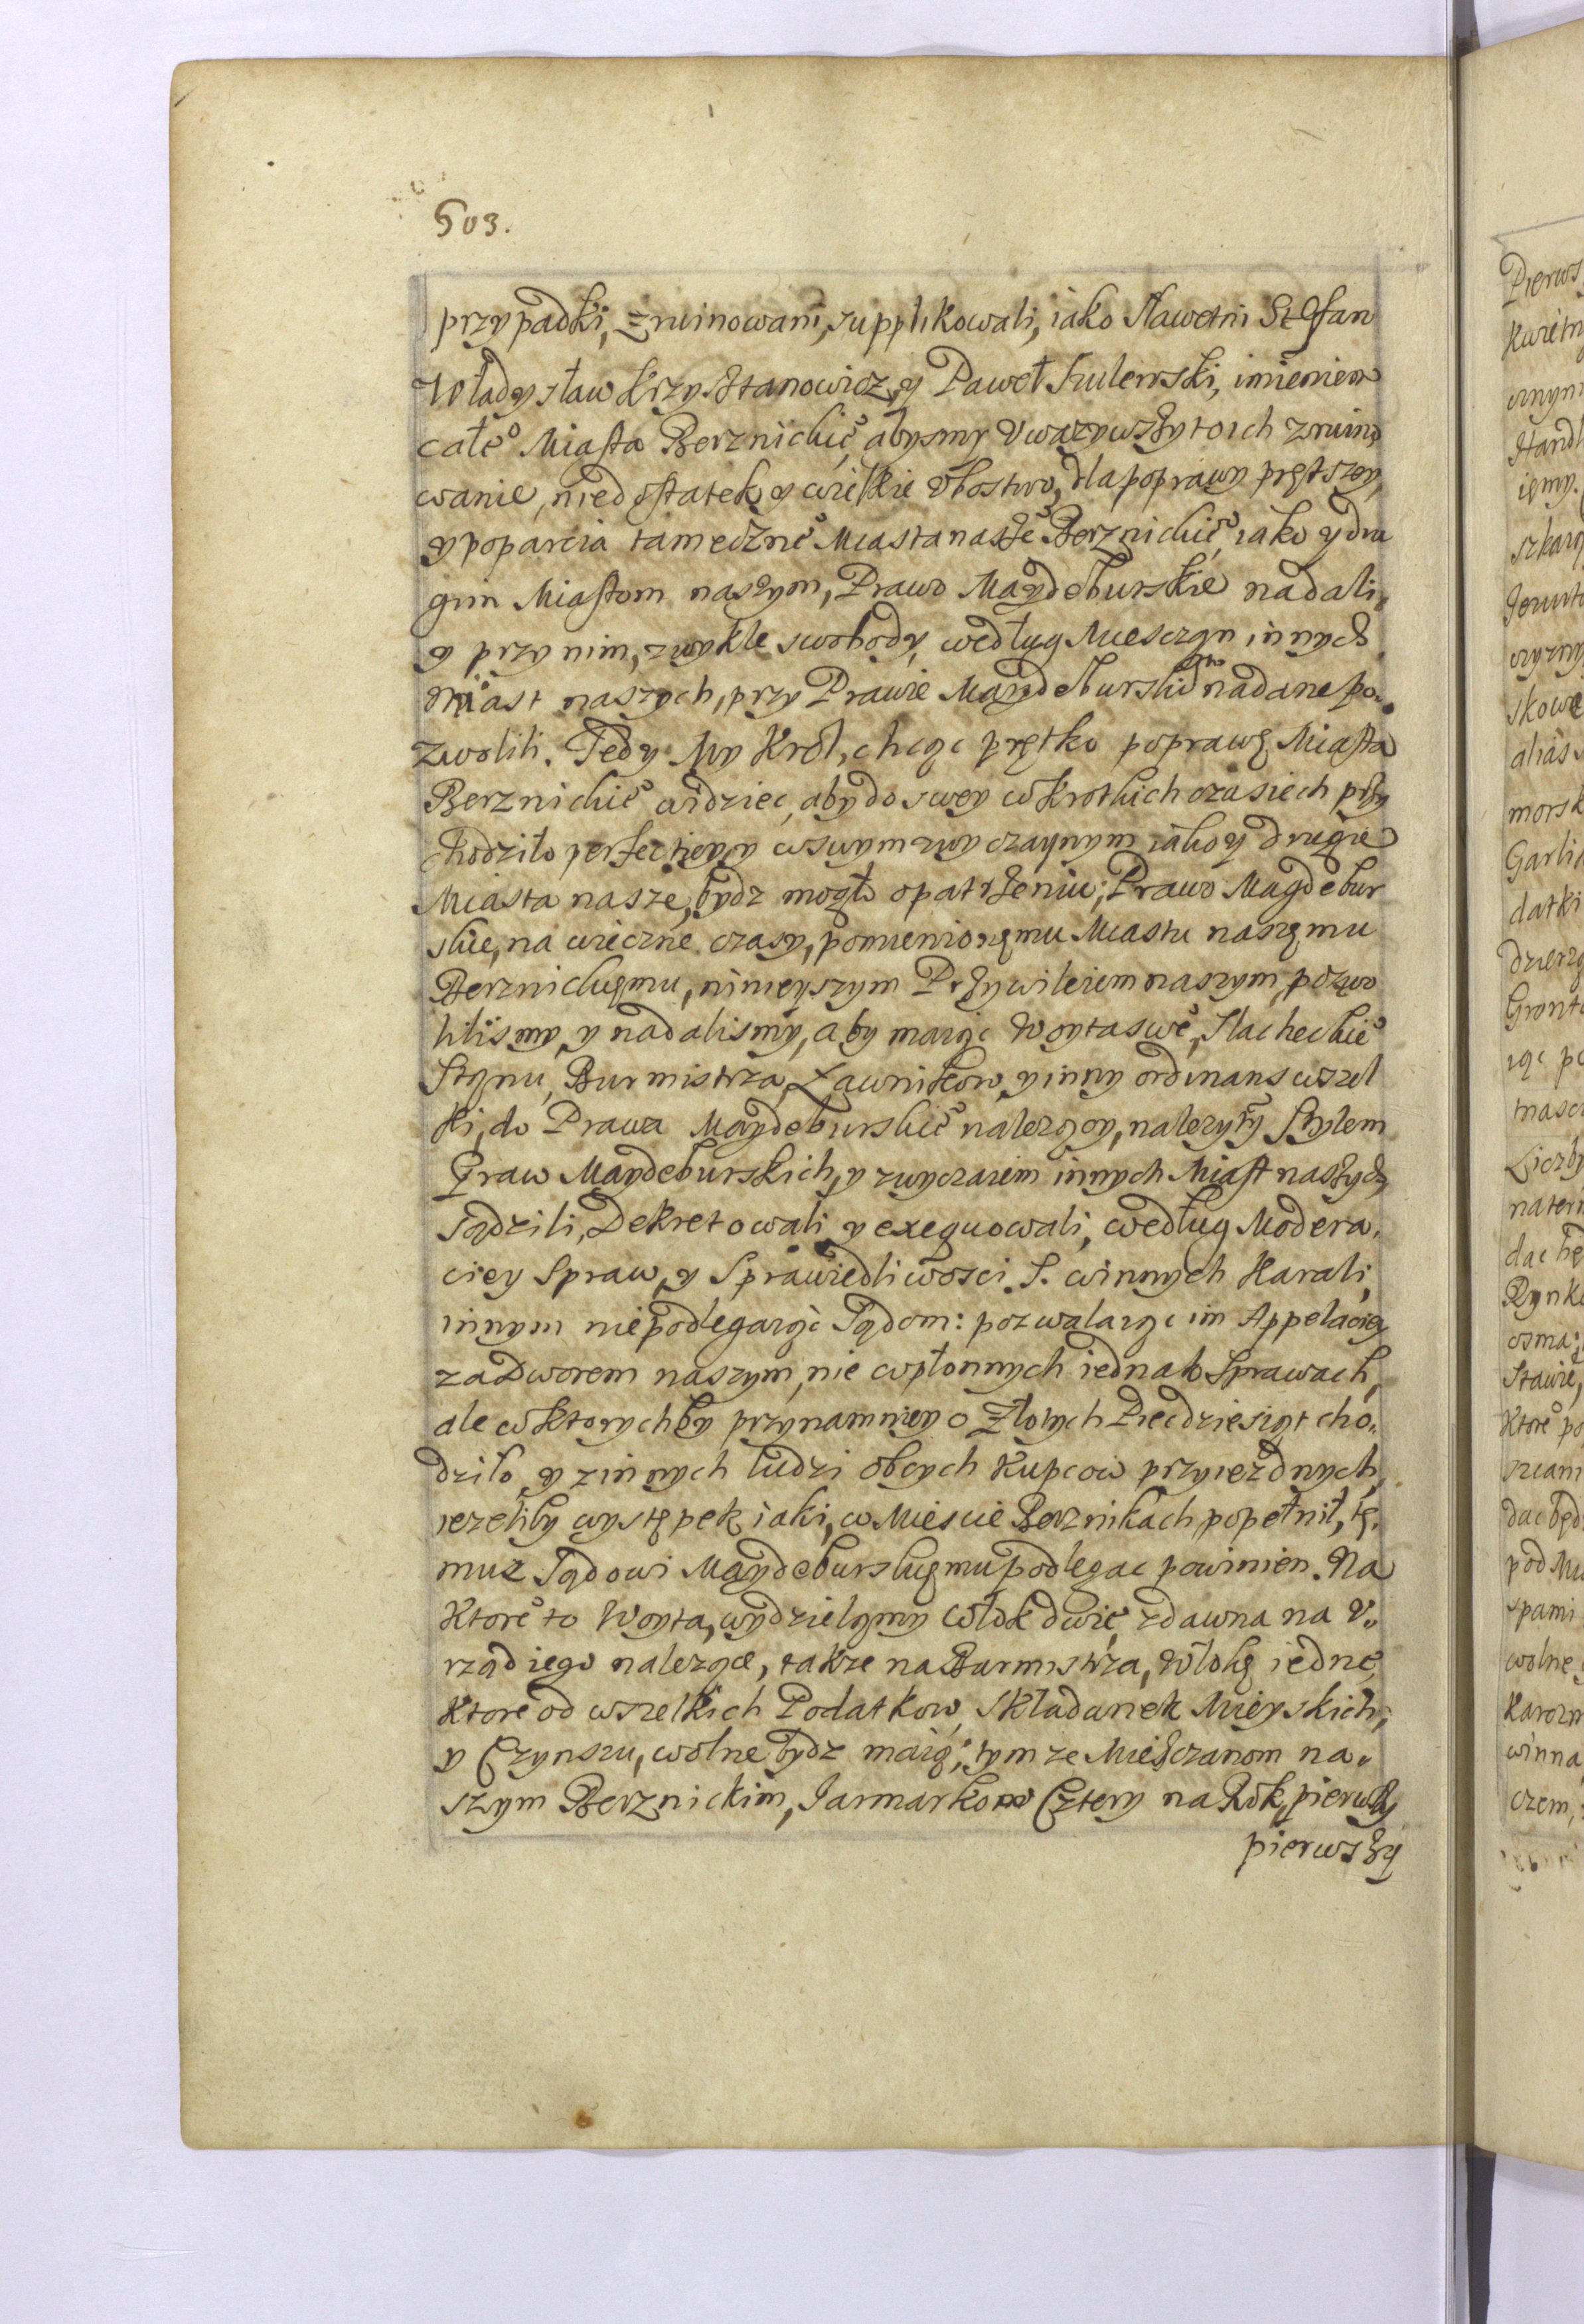 503.
przypadki, zruinowani, supplikowali, iako Sławetni Stefan
Władysław Krzysztanowicz, y Paweł Kulewski, imieniem
całe° Miasta Berznickie°, abysmy Uwazywszy to ich zruino
wanie, niedostatek, y wielkie Ubostwo, dla poprawy prętszey,
y poparcia tameczne° Miasta nasze° Berznickie°, iako y dru
gim Miastom naszym, Prawo Maydeburskie nadali,
y przy nim, zwykłe swobody, według Miesczan innych
Miast naszych, przy Prawie Maydeburskim nadane po„
zwolili. Tedy My Krol, chcąc prętko poprawę Miasta
Berznickie° widziec, aby do swey w krotkich czasiech przy
chodziło perfectiey, y w swym zwyczaynym iako y drugie
Miasta nasze, bydz mogło opatrzeniu; Prawo Magdebur
skie, na wieczne czasy, pomienionęmu Miastu naszęmu
Berznickięmu, ninieyszym Przywileiem naszym, pozwo
lilismy, y nadalismy, aby maiąc Woyta swe°, Slacheckie°
Stąnu, Burmistrza, Ławnikow, y inny ordinans wszel
ki, do Prawa Maydeburskie° nalezący, nalezytÿ Stylem
Praw Maydeburskich, y zwyczaiem innych Miast naszych,
sądzili, Dekretowali y exequowali, według Modera„
ciey Spraw, y Sprawiedliwosci S. winnych Karali,
innym niepodlegaiąc Sądom: pozwalaiąc im Appelacią
za Dworem naszym, nie wpłonnych iednak Sprawach,
ale w ktorychby przynamniey o Złotych Piecdziesiąt cho„
dziło, y z innych ludzi obcych Kupcow przyiezdnych,
iezeliby występek iaki, w Miescie Berznikach popełnił, tę„
muz Sądowi Maydeburskięmu podlegac powinien. Na
Ktore° to Woyta, wydzielamy Włok dwie, zdawna na U„
rząd iego nalezące, takze na Burmistrza, Włokę iednę,
Ktore od wszelkich Podatkow, Składanek Mieyskich,
y Czynszu, wolne bydz maią; tym ze Miesczanom na„
szym Berznickim, Iarmarkow Cztery na Rok, pierwszy
pierwszy